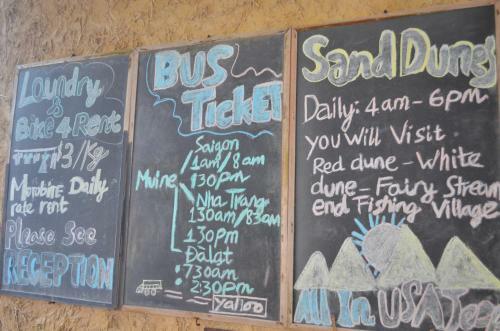 Loundry
&
Bike 4 Rent
$3/Kg
Motobike Daily
rate rent
Please See
RECEPTION
BUS
TICKET
Saigon
1am/8am
130pm
Muine
Nha Trang
130am/83am
130pm
Đàlat
730am
2:30pm
Yahoo
Sand Dunes
Daily: 4am - 6pm
you Will Visit
Red dune - White
dune - Fairy Stream
end Fishing Village
All In USA